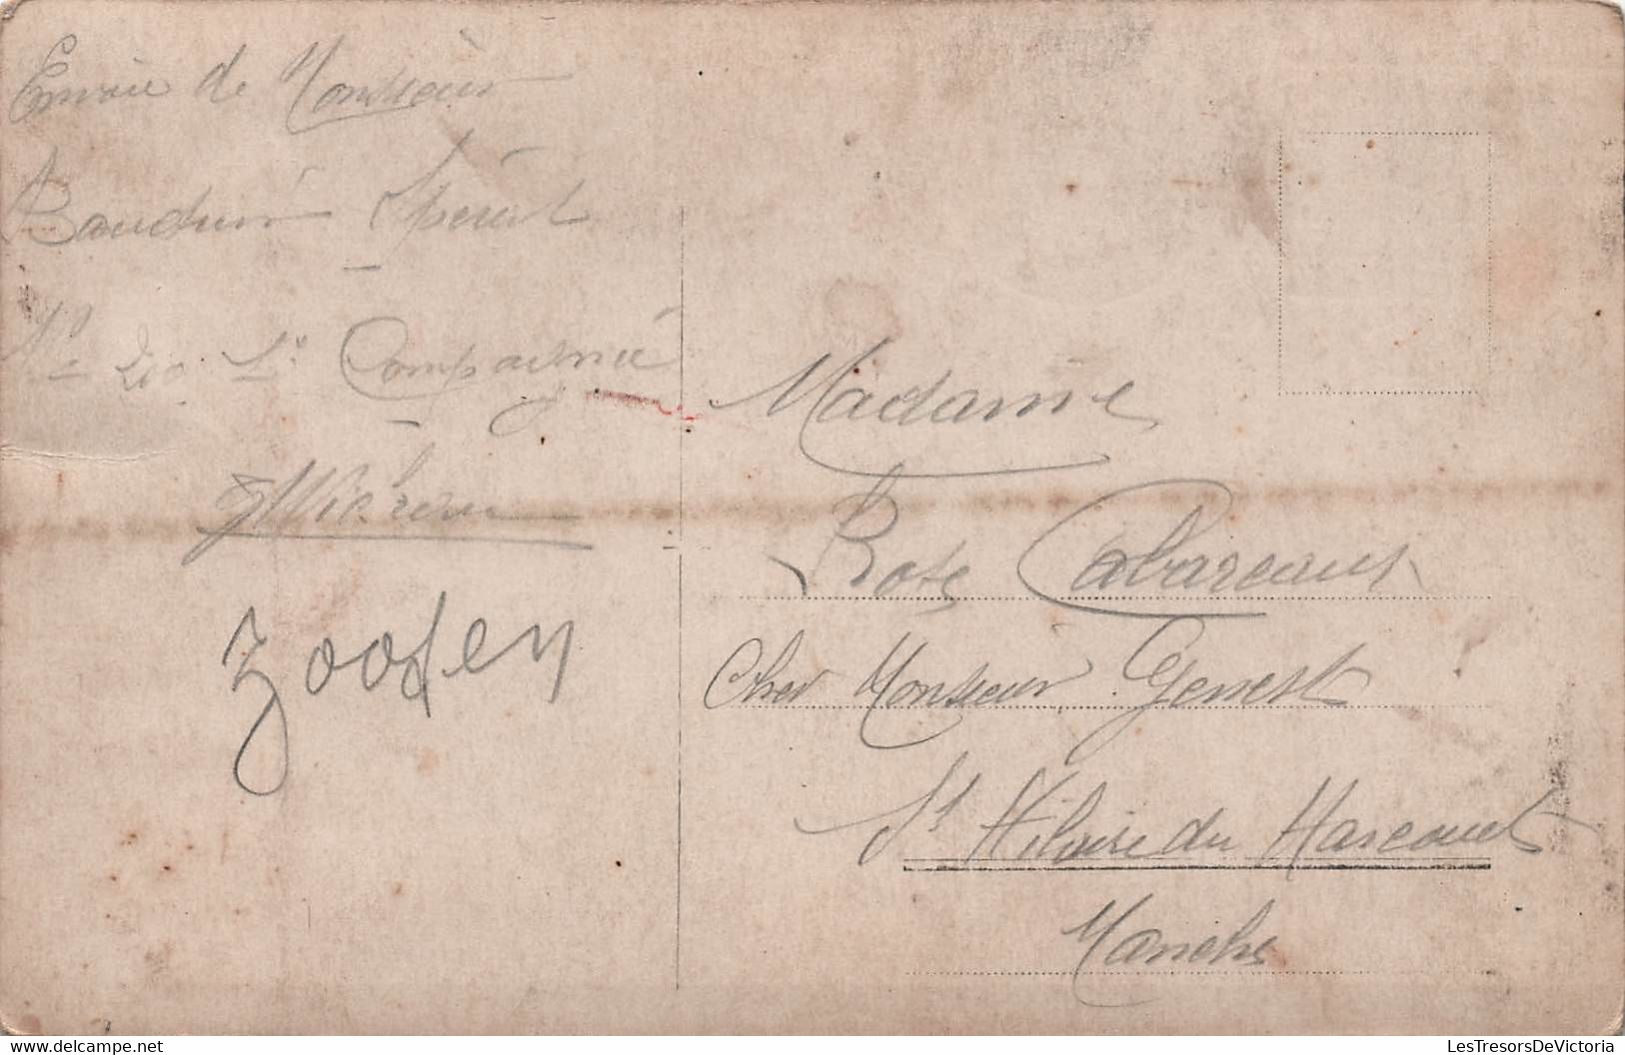 Envoie de Monsieur
Baudin
Nº 210 1º Compagnie
Zoosen
Madame
Rose Cabareaux
Cher Monsieur Genest
St Hilaire du Harcouet
Manche
delcampe.com
LesTresorsDeVictoria